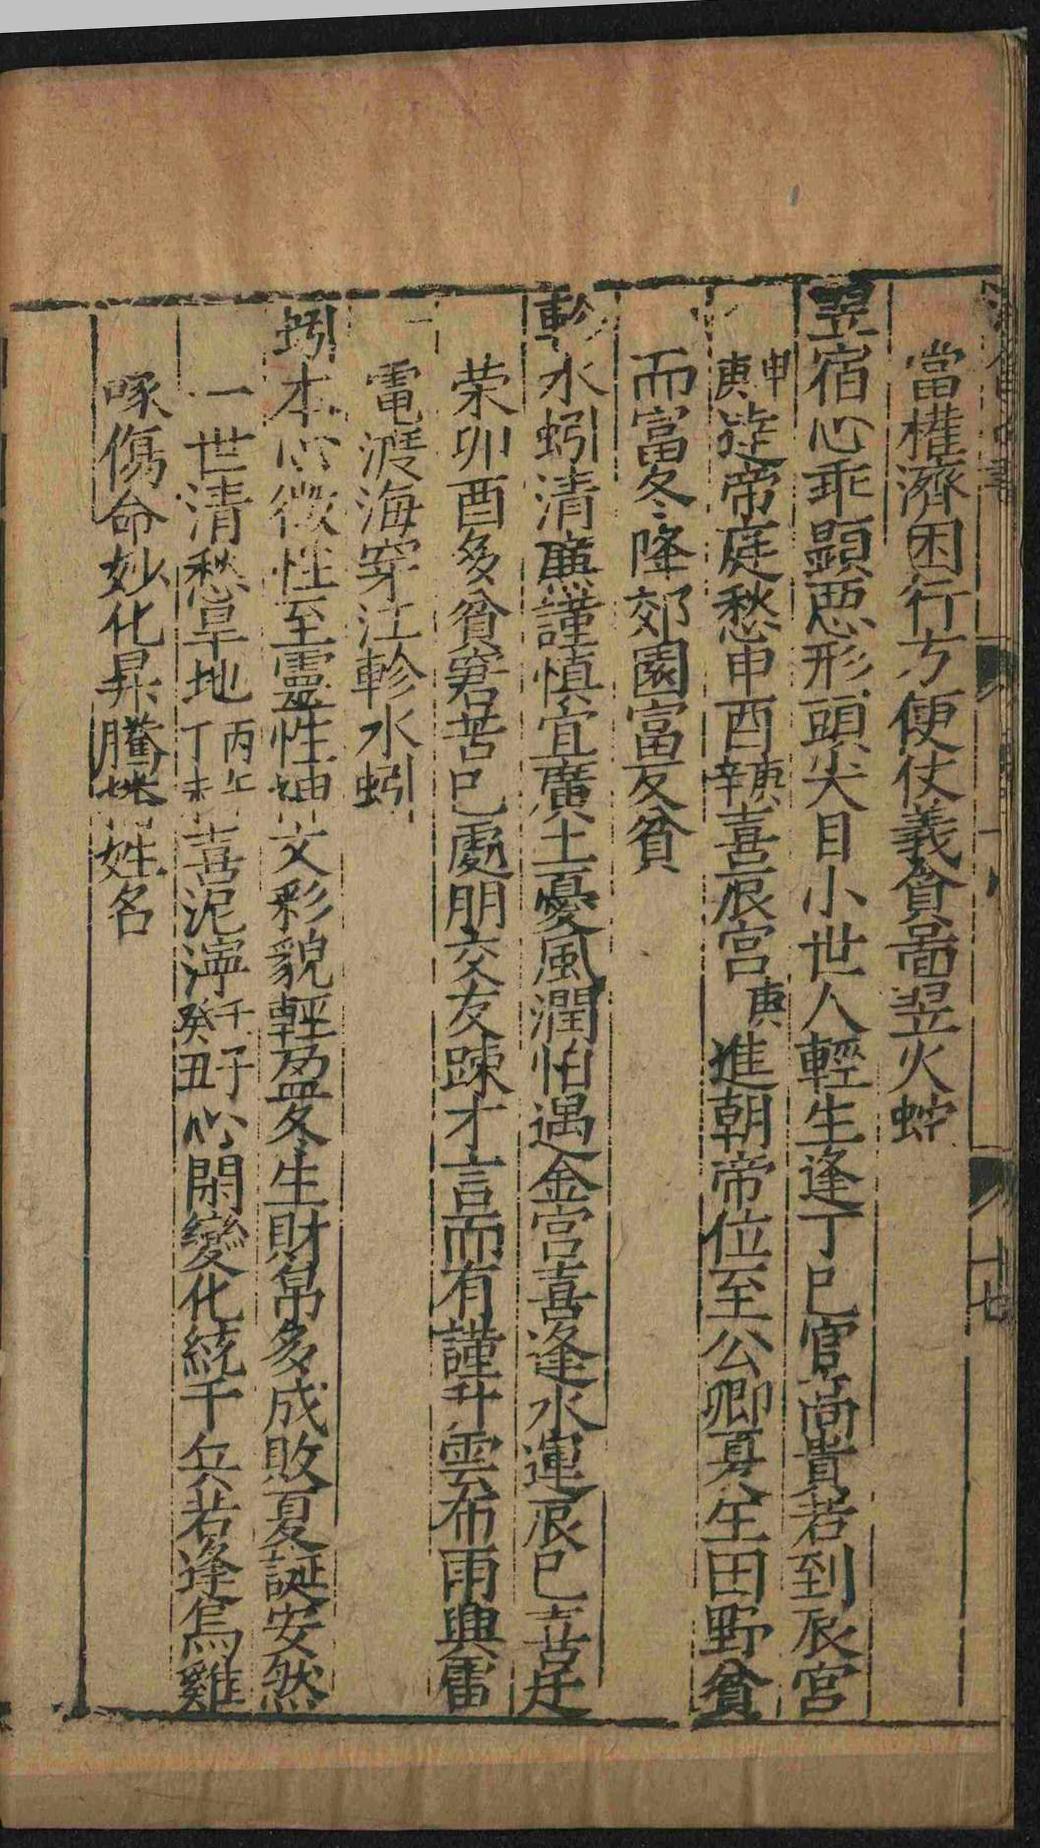 當權濟困行方便仗義貧啚翌火蛇
翌宿心乖顕恶形頭尖目小世人輕生逢丁巳官髙貴若到辰宮
申庚逆帝庭愁申酉辣喜辰宮庚進朝帝位至公卿夏生田野貧
而富冬降郊園富反貧
軫水蚓清廉謹慎宜廣土憂風潤怕遇金宮喜逢水運辰巳喜廷
荣卯酉多貧窘若巳處朋交友踈才言而有謹升雲布雨興雷
電渡海穿江軫水蚓
蚓本心微性至靈性 文彩貌輕盈冬生財帛多成敗夏誕安然
一世清愁旱地丙午丁未喜泥濘壬子癸丑心閑變化統千兵若逢烏雞
啄傷命妙化昇騰 姓名
十七